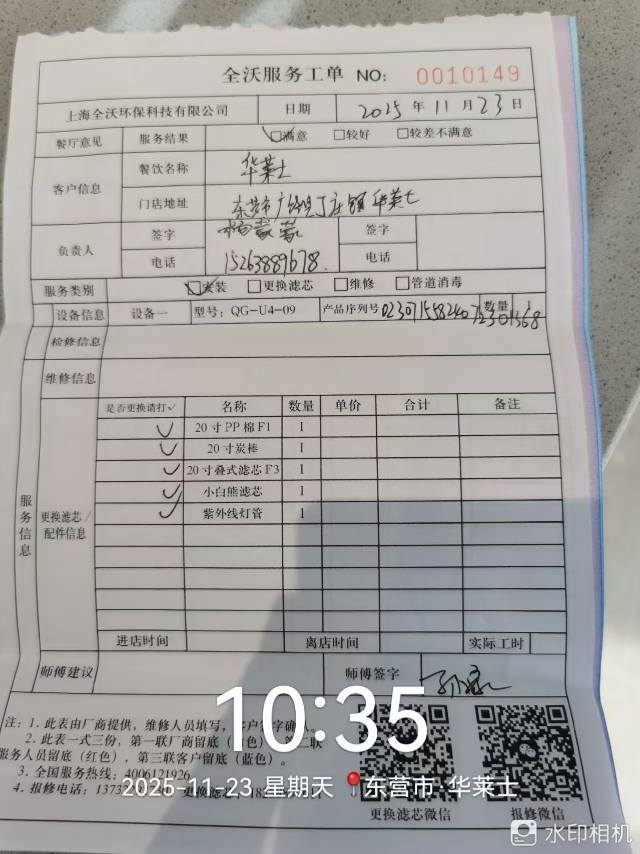 全沃服务工单 NO: 0010149
上海全沃环保科技有限公司 日期 2025年11月23日
餐厅意见 服务结果 ☑满意 □较好 □较差不满意
客户信息 餐饮名称 华莱士
门店地址 东营市广饶县丁庄镇华莱士
负责人 签字 签字
电话 15263889678. 电话
服务类别 ☑安装 □更换滤芯 □维修 □管道消毒
设备信息 设备一 型号: QG-U4-09 产品序列号 数量 1
检修信息
维修信息
服务信息
更换滤芯/配件信息
是否更换请打✓ 名称 数量 单价 合计 备注
✓ 20寸PP棉F1 1
✓ 20寸炭棒 1
✓ 20寸叠式滤芯F3 1
✓ 小白熊滤芯 1
✓ 紫外线灯管 1
进店时间 离店时间 实际工时
师傅建议 师傅签字
注: 1. 此表由厂商提供, 维修人员填写, 客户签字确
2. 此表一式三份, 第一联厂商留底 联
服务人员留底(红色), 第三联客户留底(蓝色)。
3. 全国服务热线: 4006121926
4. 报修电话: 1373 更换滤芯
更换滤芯微信 报修微信
10:35
2025-11-23 星期天 东营市·华莱士
水印相机